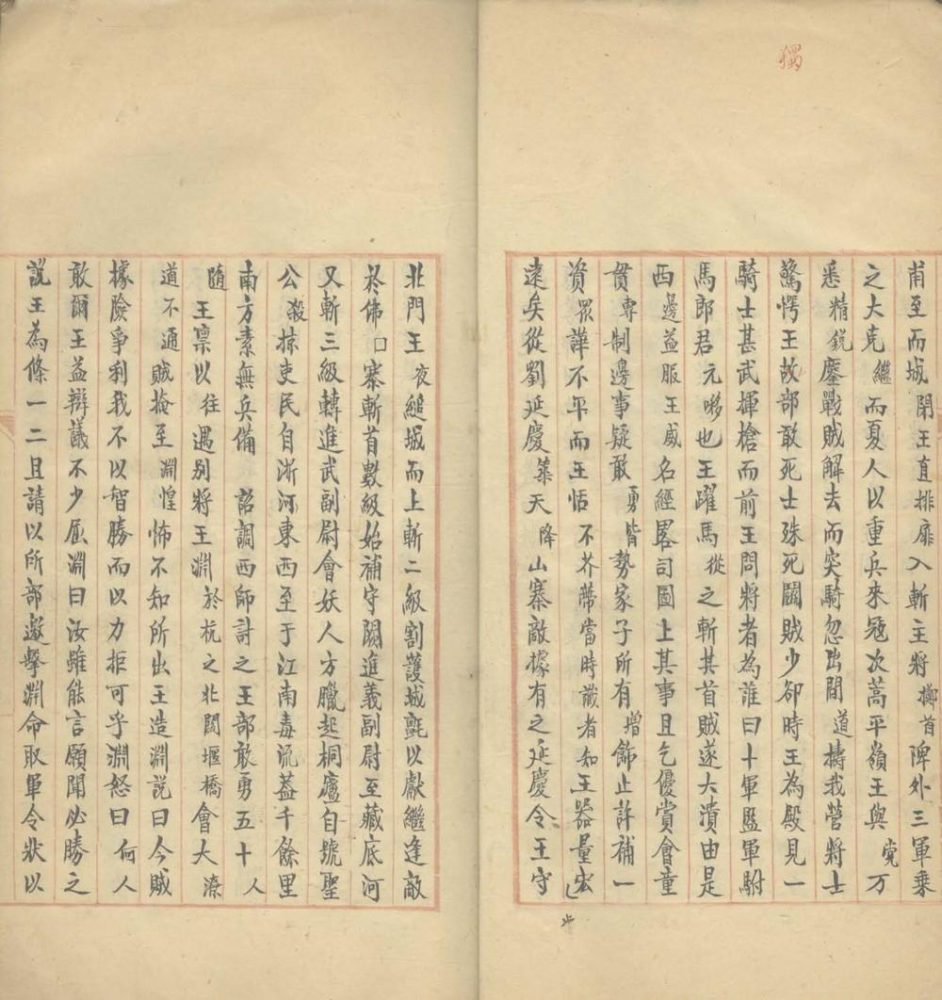 獨
甫至而城閉王直排扉入斬主將擲首陴外三軍乗
之大克繼而夏人以重兵來冦次蒿平嶺王與党万
悉精鋭鏖戰賊解去而突騎忽出間道擣我營將士
驚愕王故部敢死士殊死鬭賊少卻時王為殿見一
騎士甚武揮槍而前王問將者為誰曰十軍監軍駙
馬郎君兀㖿也王躍馬從之斬其首賊遂大潰由是
西邊益服王威名經畧司圖上其事且乞優賞會童
貫專制邊事疑敢勇皆勢家子所有增飾止許補一
資衆譁不平而王恬不芥蔕當時識者知王器量宏
遠矣從劉延慶築天降山寨敵據有之延慶令王守
北門王夜縋城而上斬二級割護城氈以獻繼逢敵
於佛口寨斬首數級始補守闕進義副尉至藏底河
又斬三級轉進武副尉會妖人方臘起桐廬自號聖
公殺掠吏民自浙河東西至于江南毒流葢千餘里
南方素無兵備詔調西師討之王部敢勇五十人
隨王稟以往遇别將王淵於杭之北闗堰橋會大潦
道不通賊掩至淵惶怖不知所出王造淵説曰今賊
據險爭利我不以智勝而以力拒可乎淵怒曰何人
敢爾王益辯議不少屈淵曰汝雖能言願聞必勝之
説王為條一二且請以所部邀擊淵命取軍令狀以